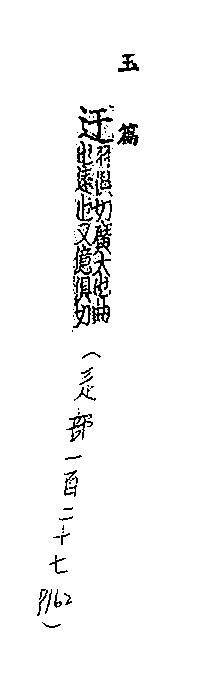 玉篇
迂羽俱切廣大也曲
也遠也又憶俱切
(辵部一百二十七 P162)